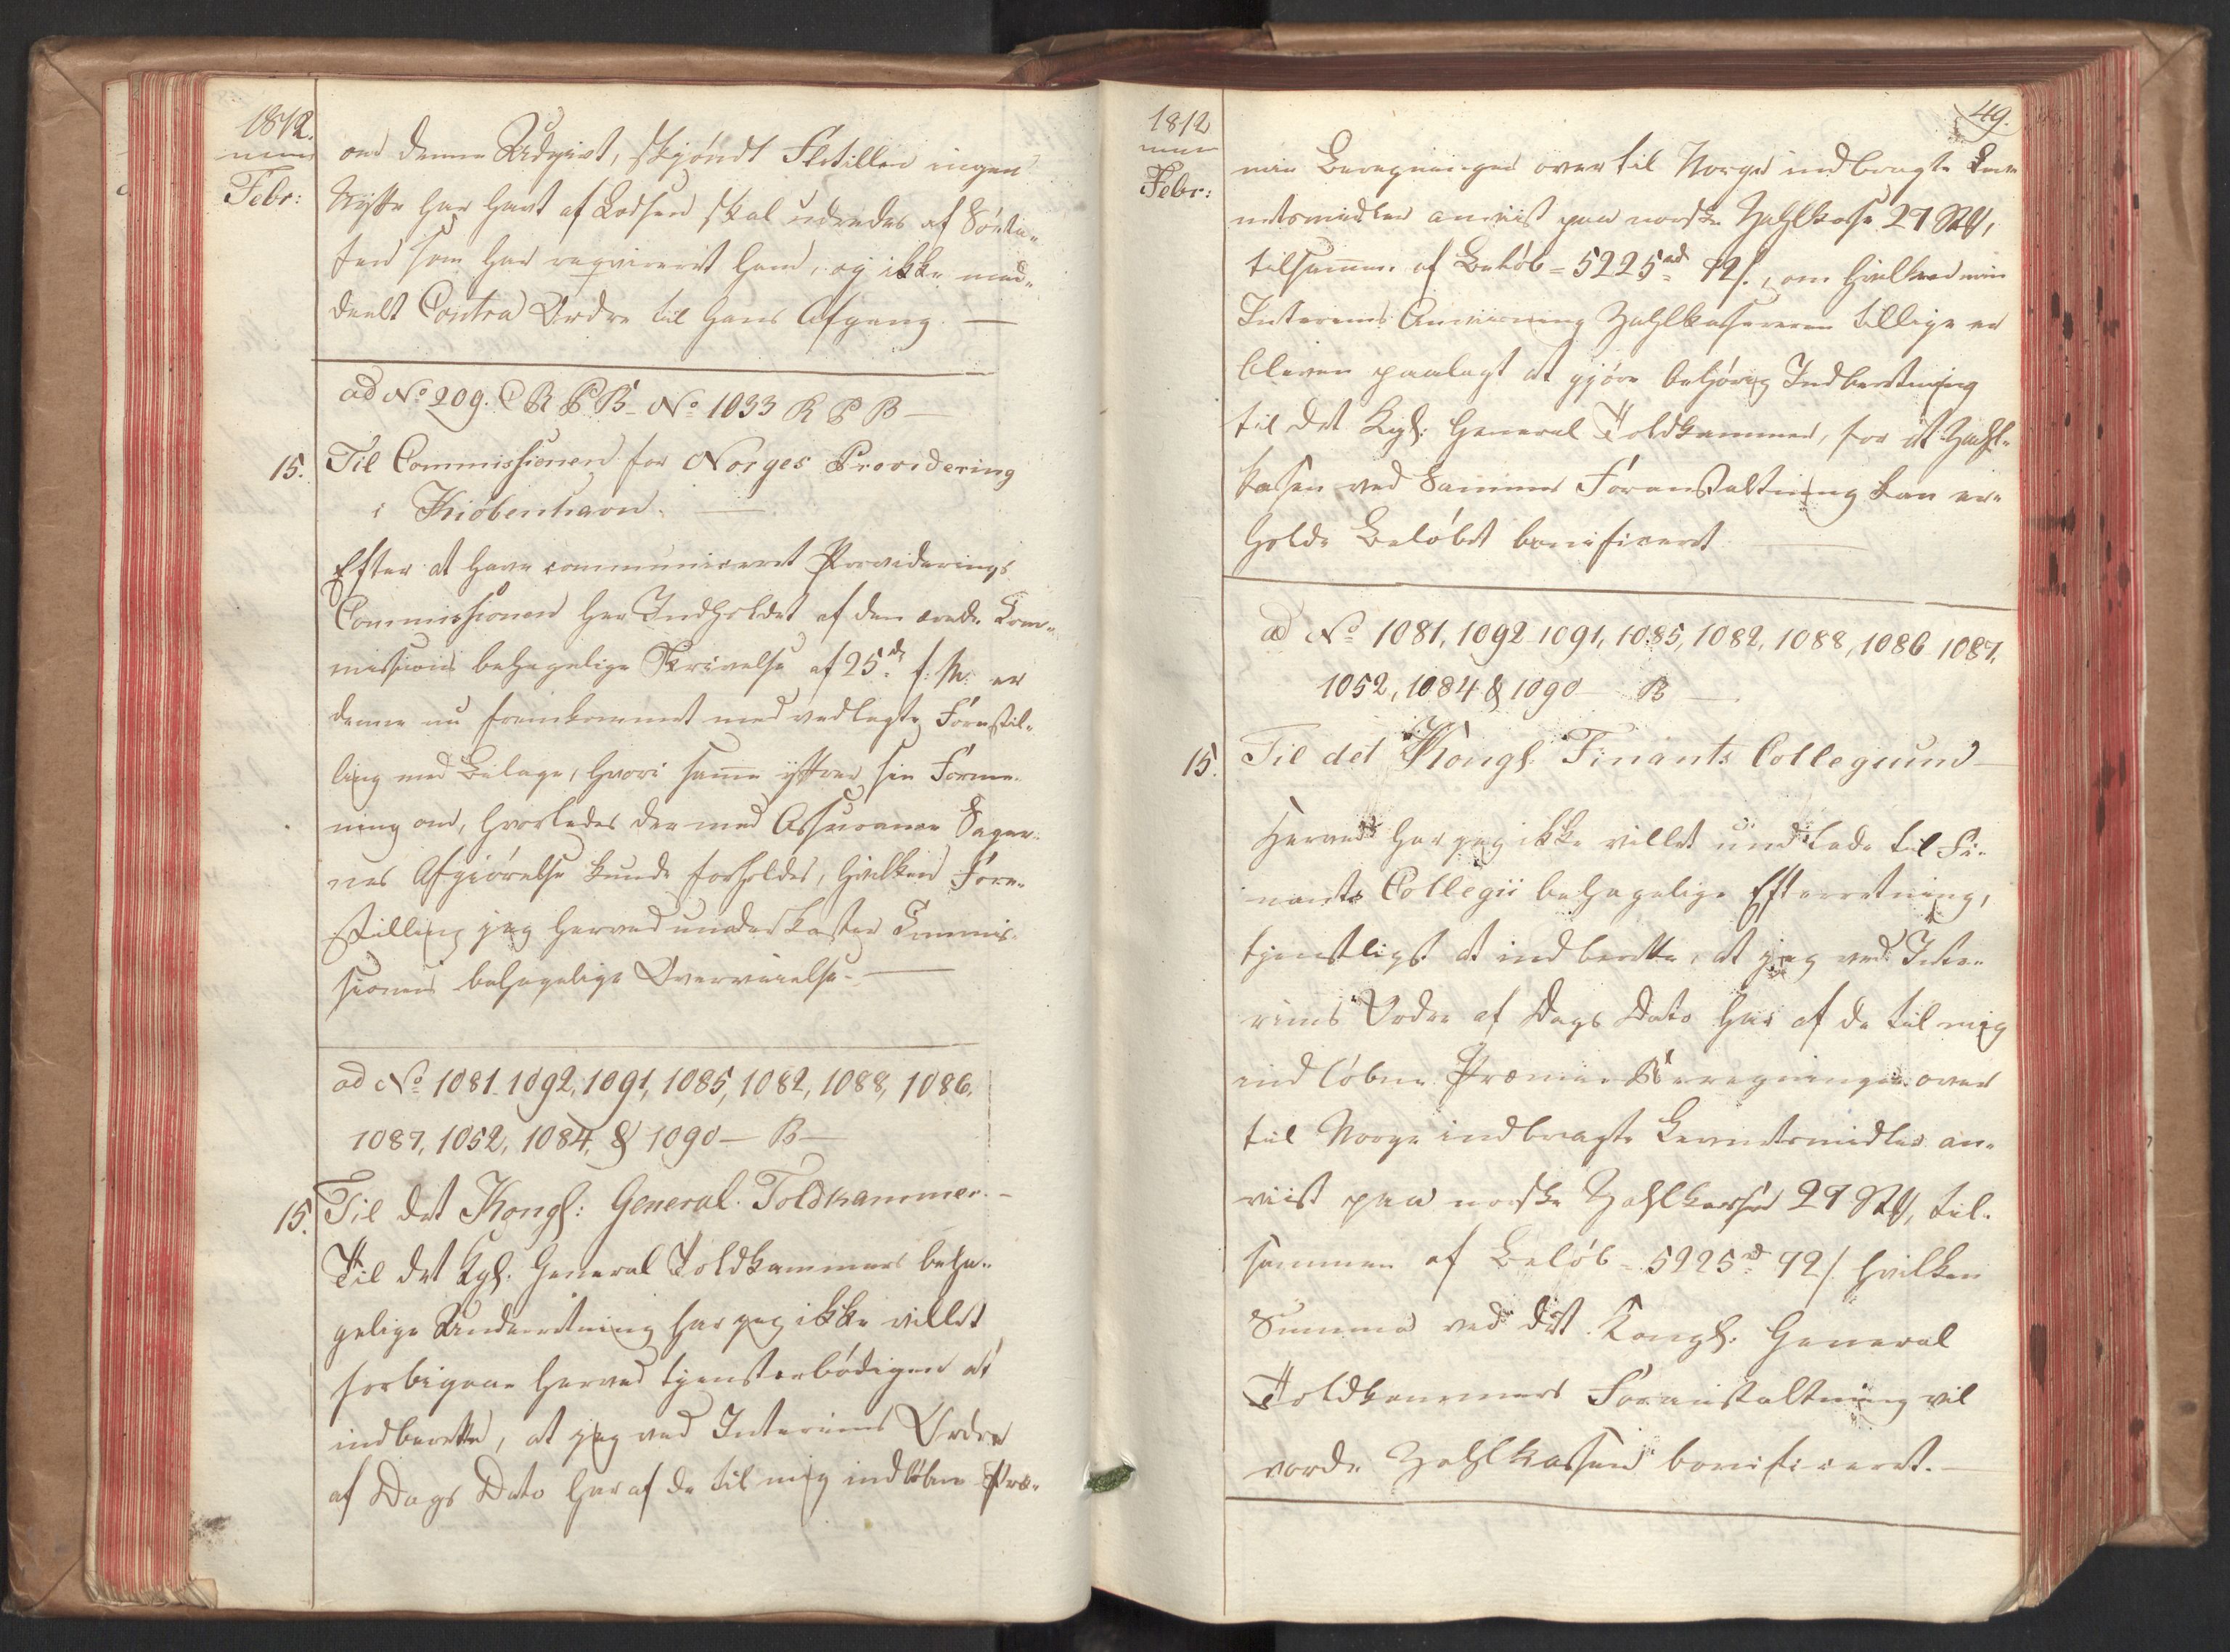 1812.
Febr:
om denne Udgivt, skjöndt Flotillen ingen
Nytte har havt af Lodsen skal udredes af
ten som har reqvireret ham, og ikke med-
deelt Contra Ordre til hans Afgang. —
ad No 209. C R P B - No 1033 R P B —
15. Til Commissionen for Norges Providering
i Kiöbenhavn. —
Efter at have communiceret Providerings
Commissionen her Indholdet af den ærede Com-
missions behagelige Skrivelse af 25de f: M: er
denne nu fremkommet med vedlagte Forestil-
ling med Bilage, hvori samme yttrer sin Forme-
ning om, hvorledes der med Assurance Sager-
nes Afgiörelse kunde forholdes, hvilken Fore-
stilling jeg herved underkaster Commis-
sionens behagelige Overveielse. —
ad No 1081. 1092, 1091, 1085, 1082, 1088, 1086,
1087, 1052, 1084, & 1090 — B —
15. Til det Kongl: General Toldkammer. —
Til det Kgl: General Toldkammers beha-
gelige Underretning har jeg ikke villet
forbigaae herved tjenstærbödigen at
indberette, at jeg ved Interims Ordre
af Dags Dato har af de til mig indlöbne Præ-
1812
Febr:
49.
mie Beregninger over til Norge indbragte Lev-
netsmidler anviist paa norske Zahlkasse 27 St,
tilsammen af Belöb = 5225 rd 92 s., om hvilken min
Interims Anviisning Zahlkassereren tillige er
bleven paalagt at gjöre behörig Indberetning
til det Kgl: General Toldkammer, for at Zahl-
kassen ved Sammes Foranstaltning kan er-
holde Belöbet bonificeret —
ad No 1081, 1092 1091, 1085, 1082, 1088, 1086 1087,
1052, 1084 & 1090 — B —
15. Til det Kongl. Finants Collegium —
Herved har jeg ikke villet undlade til Fi-
nants Collegii behagelige Efterretning,
tjenstligst at indberette, at jeg ved Inte-
rims Ordre af Dags Dato har af de til mig
indlöbne Præmie Beregninger over
til Norge indbragte Levnetsmidler an-
viist paa norske Zahlkasse 27 St, til-
sammen af Belöb = 5225 rd 92 s. hvilken
Summa ved det Kongl: General
Toldkammers Foranstaltning vil
vorde Zahlkassen bonificeret. —